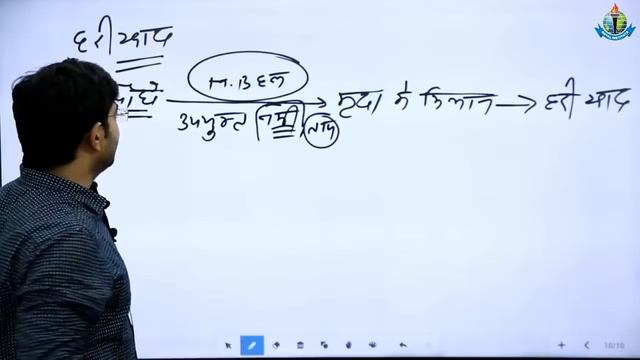 हरी खाद
पौधे M.B हल मृदा में मिलान → हरी खाद
उपयुक्त नमी, ताप
10/10